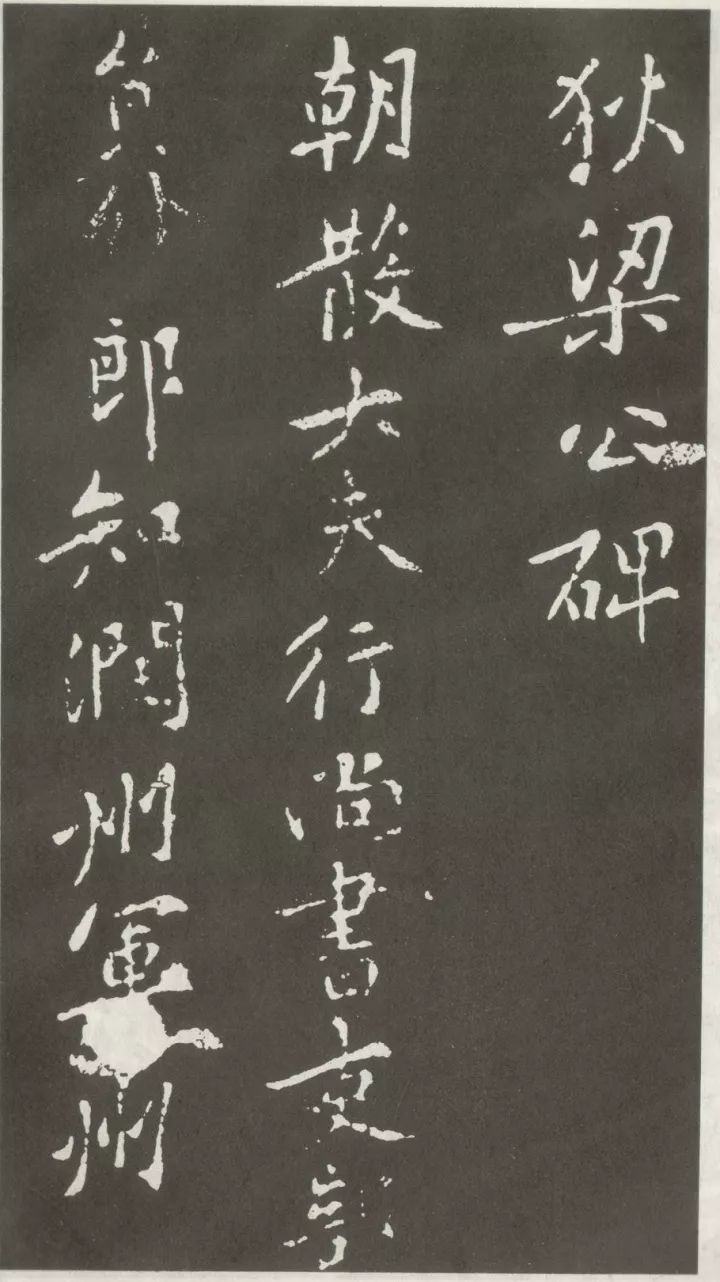 狄梁公碑
朝散大夫行尚書吏部
員外郎知潤州軍州